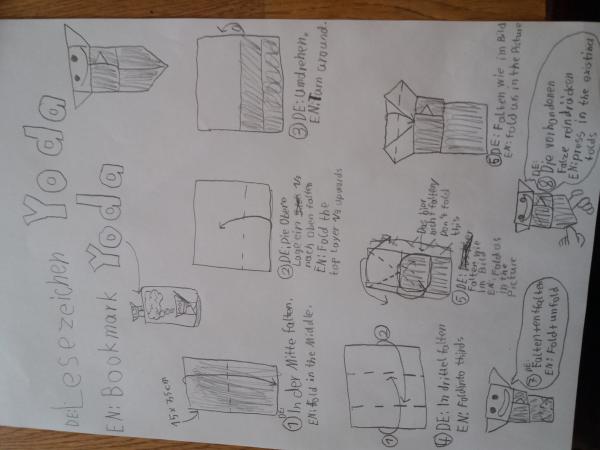 DE: Lesezeichen Yoda
EN: Bookmark Yoda
15x7,5cm
① DE: In der Mitte falten.
EN: Fold in the Middle.
② DE: Die Obere
Lage ein 1/3
nach oben falten
EN: Fold the
top layer 1/3 upwards
③ DE: Umdrehen.
EN: Turn around.
① ②
④ DE: In drittel falten
EN: Fold into thirds
Den hier
nicht falten/
Don't fold
this
⑤ DE:
Falten wie
im Bild
EN: Fold as
in the
Picture
⑥ DE: Falten wie im Bild
EN: Fold as in the Picture
⑦ DE:
Falten
EN: Fold unfold
DE:
⑧ Die vorhandenen
Falze reindrücken
EN: press in the existing
folds